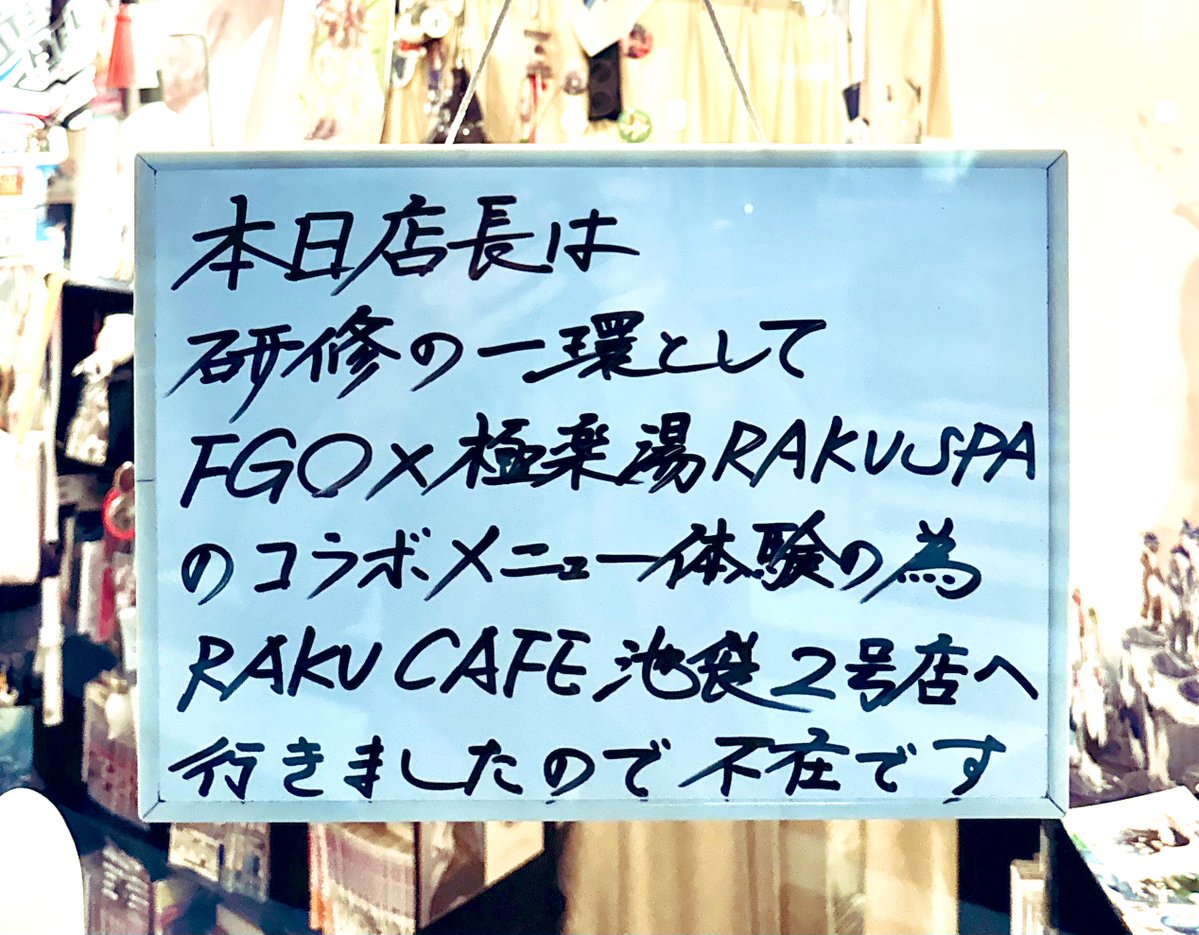 本日店長は
研修の一環として
FGO×極楽湯RAKUSPA
のコラボメニュー体験の為
RAKU CAFE 池袋2号店へ
行きましたので不在です